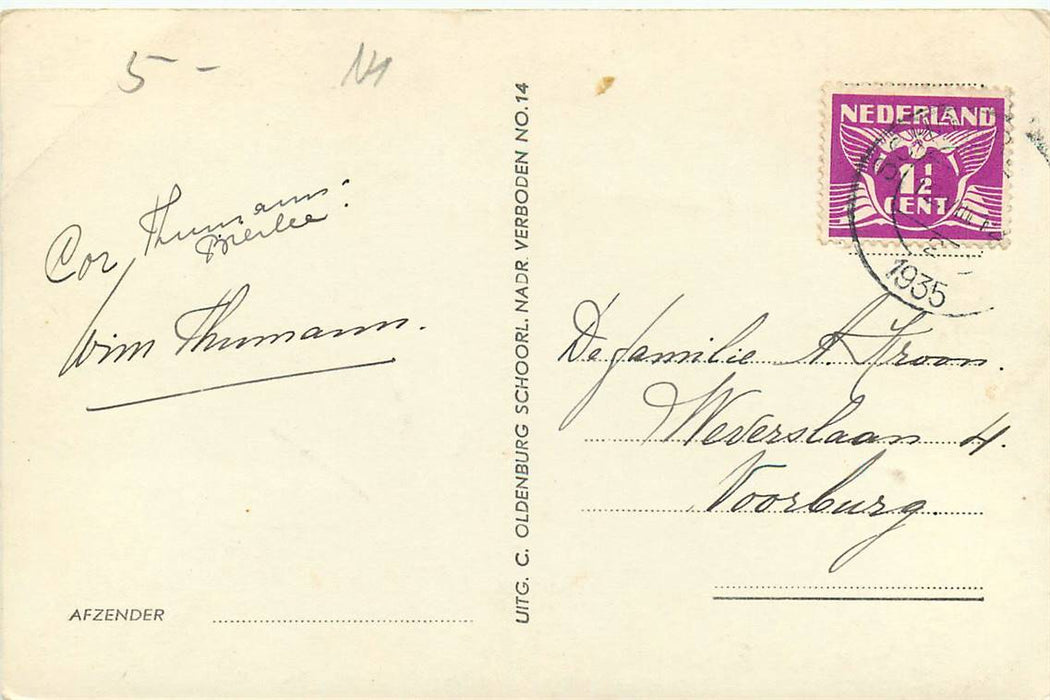 5 - NH
Cor Thumann:
Wim Thumann.
AFZENDER
UITG. C. OLDENBURG SCHOORL. NADR. VERBODEN NO. 14
NEDERLAND
1½
CENT
1935
De familie A. Kroon.
Weverslaan 4.
Voorburg.